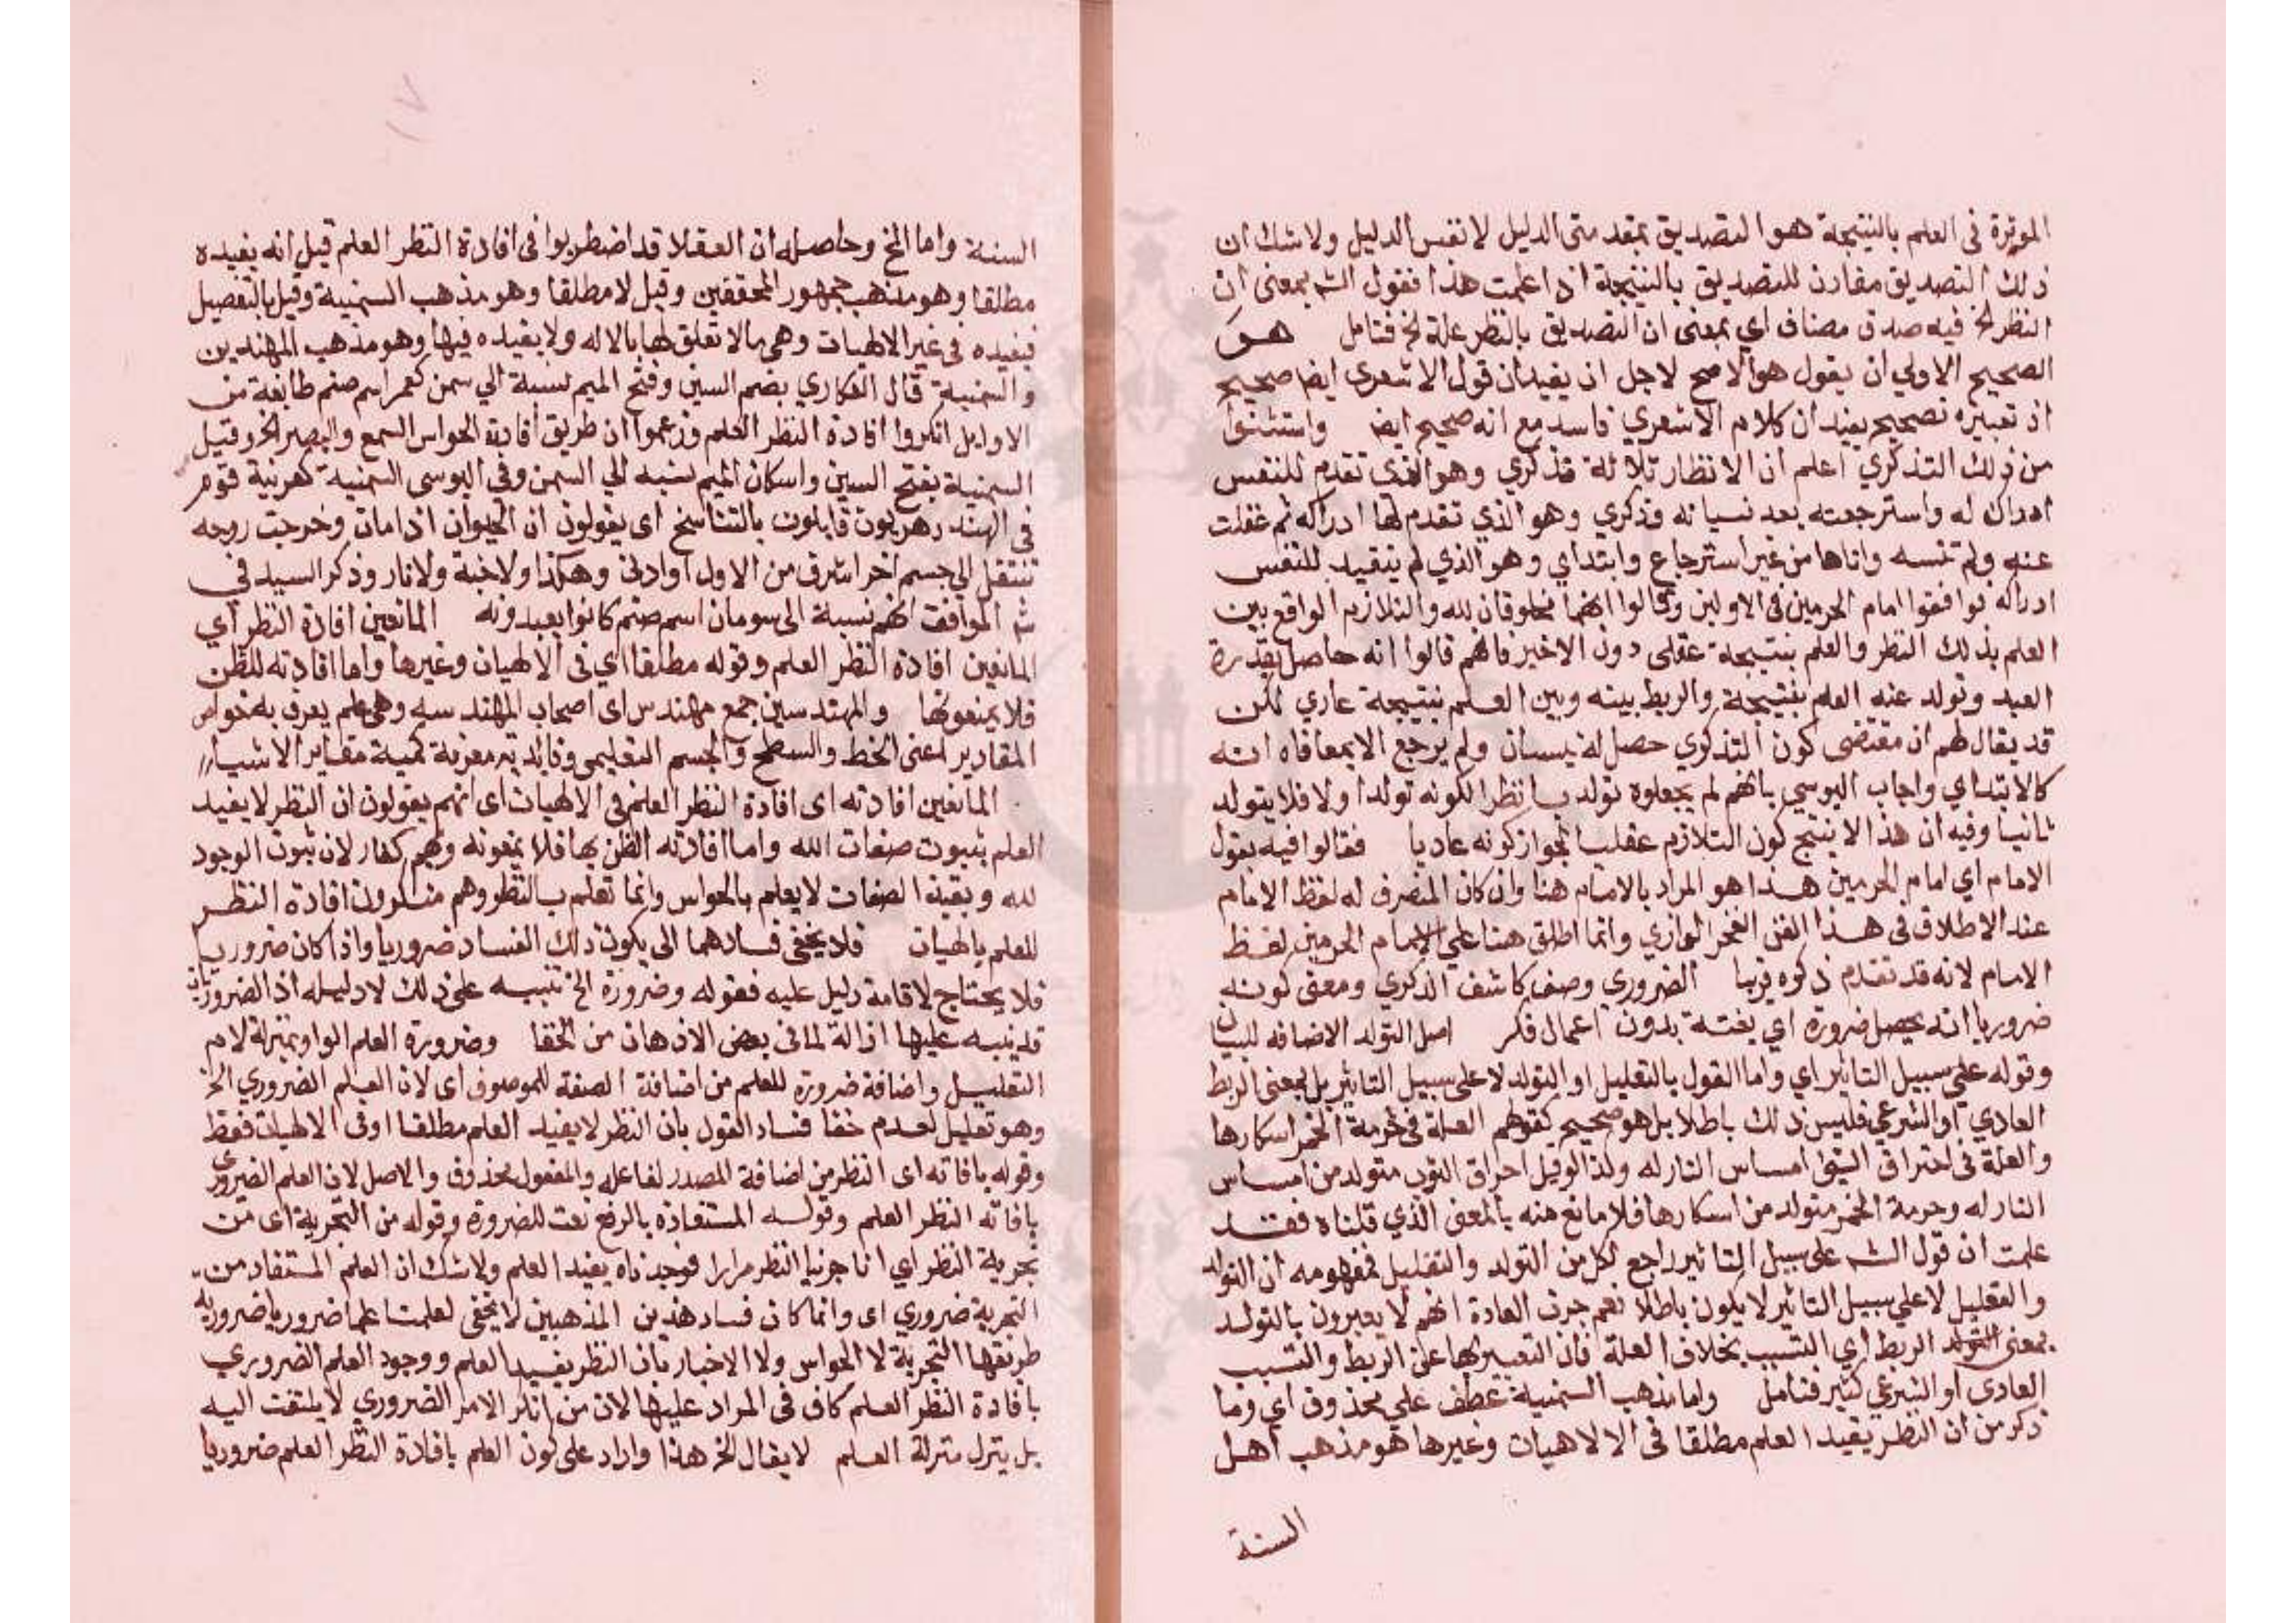 الموثرة في العلم بالنتيجة هو التصديق بمقدمتي الدليل لا نفس الدليل ولا شك ان
ذلك التصديق مقارن للتصديق بالنتيجة اذا علمت هذا فقول الشه بمعنى ان
النظر الخ فيه حذف مضاف اي بمعنى ان التصديق بالنظر علة الخ فتامل هو
الصحيح الاولي ان يقول هو الاصح لاجل ان يفيد ان قول الاشعري ايضا صحيح
اذ تعبيره بصحيح يفيد ان كلام الاشعري فاسد مع انه صحيح ايضا واستثنوا
من ذلك التذكري اعلم ان الانظار ثلاثة تذكري وهو الذي تقدم للنفس
ادراك له واسترجعته بعد نسيانه وذكري وهو الذي تقدم لها ادراكه ثم غفلت
عنه ولم تنسه واتاها من غير استرجاع وابتداي وهو الذي لم يتقيد للنفس
ادراكه فوافقوا امام الحرمين في الاولين وقالوا انهما مخلوقان لله والتلازم الواقع بين
العلم بذلك النظر والعلم بنتيجة عقلى دون الاخير فانهم قالوا انه حاصل بقدرة
العبد وتولد عنه العلم بنتيجة والربط بينه وبين العلم بنتيجة عادي لكن
قد يقال لهم ان مقتضى كون التذكري حصل له نسيان ولم يرجع الا بمعافاه انه
كالابتداي واجاب اليوسي بانهم لم يجعلوه تولد بـا نظرا لكونه تولد اولا فلا يتولد
ثانيا وفيه ان هذا لا ينتج كون التلازم عقليا لجواز كونه عاديا فقالوا فيه بقول
الامام اي امام الحرمين هذا هو المراد بالامام هنا وان كان المنصرف له لفظ الامام
عند الاطلاق في هذا الفن الفخر الرازي وانما اطلق هنا على الامام الحرمين لفظ
الامام لانه قد تقدم ذكره قريبا الضروري وصف كاشف الذكري ومعنى كونه
ضروريا انه يحصل ضرورة اي بغتة بدون اعمال فكر اصل التولد الاضافه للبيان
وقوله على سبيل التاثير اي واما القول بالتعليل او التولد لا على سبيل التاثير بل بمعنى الربط
العادي او الشرعي فليس ذلك باطلا بل هو صحيح كقولهم العلة في حرمة الخمر اسكارها
والعلة في احتراق الثوب امساس النار له ولذا لو قيل احراق الثوب متولد من امساس
النار له وحرمة الخمر متولد من اسكارها فلا مانع منه بالمعنى الذي قلناه فقد
علمت ان قول الشه على سبيل التاثير راجع لكل من التولد والتعليل فمفهومه ان التولد
والتعليل لا على سبيل التاثير لا يكون باطلا نعم جرت العادة انهم لا يعبرون بالتولد
بمعنى التولد الربط اي التسبب بخلاف العلة فان التعبير بها عن الربط والتسبب
العادي او الشرعي كثير فتامل واما مذهب السمنية عطف على محذوف اي وما
ذكر من ان النظر يفيد العلم مطلقا في الالاهيات وغيرها هو مذهب اهل
السنة
السنة واما الخ وحاصله ان العقلا قد اضطربوا في افادة النظر العلم قيل انه يفيده
مطلقا وهو مذهب جمهور المحققين وقيل لا مطلقا وهو مذهب السمنية وقيل بالتفصيل
فيفيده في غير الالهيات وهي ما لا تعلق لها بالاله ولا يفيده فيها وهو مذهب المهندسين
والسمنية قال العكاري بضم السين وفتح الميم نسبة الي سمن كعمر اسم صنم طائفة من
الاوايل انكروا افادة النظر العلم وزعموا ان طريق افادة الحواس السمع والبصر الخ وقيل
السمنية بفتح السين واسكان الميم نسبه الي السمن وفي اليوسى السمنية كعرنية قوم
في الهند دهريون قايلون بالتناسخ اى يقولون ان الحيوان اذا مات وخرجت روحه
تنتقل الي جسم اخر اشرف من الاول او ادنى وهكذا ولا جنة ولا نار وذكر السيد في
شه المواقف انهم نسبة الى سومان اسم صنم كانوا يعبدونه المانعين افادة النظر اي
المانعين افادة النظر العلم وقوله مطلقا اي في الالهيات وغيرها واما افادته للظن
فلا يمنعونها والمهندسين جمع مهندس اى اصحاب الهندسه وهي علم يعرف به خواص
المقادير اعنى الخط والسطح والجسم التعليمي وفائدته معرفة كمية مقادير الاشياء
المانعين افادته اى افادة النظر العلم في الالهيات اى انهم يقولون ان النظر لا يفيد
العلم بثبوت صفات الله واما افادته الظن بها فلا يمنعونه وهم كفار لان ثبوت الوجود
لله وبقية الصفات لا يعلم بالحواس وانما تعلم بالنظر وهم منكرون افادة النظر
للعلم بالهيات فلا يخفى فسادهما الى يكون ذلك الفساد ضروريا واذا كان ضروريا
فلا يحتاج لاقامة دليل عليه فقوله وضرورة الخ تنبيه على ذلك لا دليله اذ الضروريات
قد ينبه عليها ازالة لما في بعض الاذهان من الخفا وضرورة العلم الواو بمنزلة لام
التعليل واضافة ضرورة للعلم من اضافة الصفة للموصوف اى لان العلم الضروري الخ
وهو تعليل لعدم خفا فساد القول بان النظر لا يفيد العلم مطلقا او في الالهيات فقط
وقوله بافاته اى النظر من اضافة المصدر لفاعله والمفعول محذوف والاصل لان العلم الضروري
بافاته النظر العلم وقوله المستفاده بالرفع نعت للضرورة وقوله من التجربة اى من
تجربة النظر اي انا جربنا النظر مرارا فوجدناه يفيد العلم ولا شك ان العلم المستفاد من
التجربة ضروري اى وانما كان فساد هذين المذهبين لا يخفى لعلمنا علما ضروريا ضروريه
طريقها التجربة لا الحواس ولا الاخبار بان النظر يفيد العلم ووجود العلم الضروري
بافادة النظر العلم كاف في المراد عليها لان من انكر الامر الضروري لا يلتفت اليه
بل ينزل منزلة العلم لا يقال الخ هذا واراد على كون العلم بافادة النظر العلم ضروريا